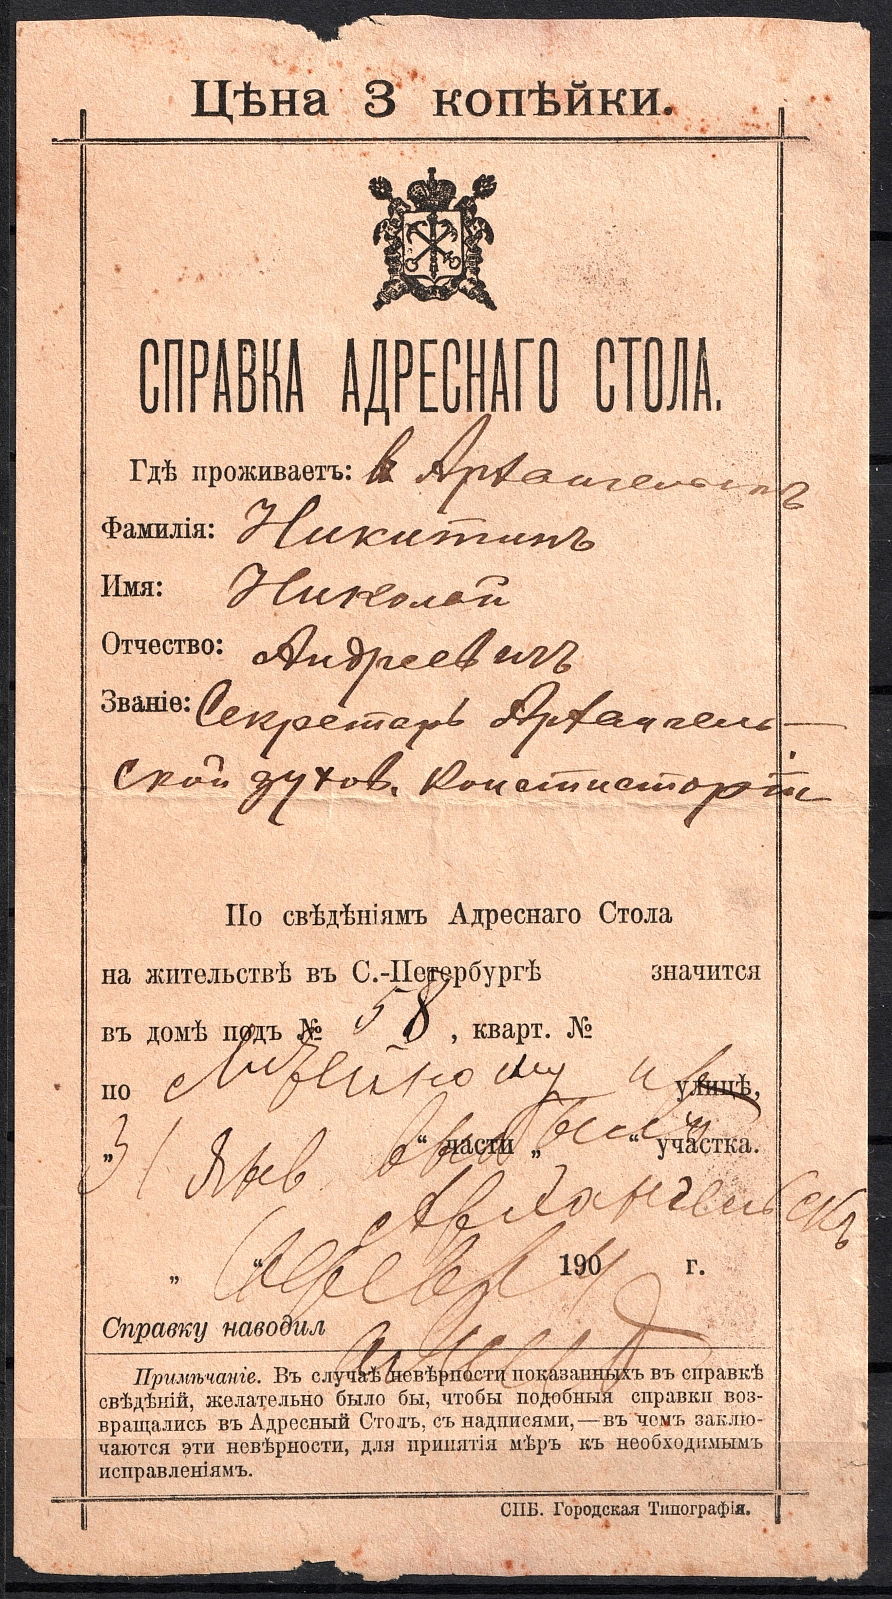 Цѣна 3 копѣйки.
СПРАВКА АДРЕСНАГО СТОЛА.
Гдѣ проживаетъ: в Архангельскѣ
Фамилія: Никитинъ
Имя: Николай
Отчество: Андреевичъ
Званіе: Секретарь Архангель-
ской духов. Консисторіи
По свѣдѣніямъ Адреснаго Стола
на жительствѣ въ С.-Петербургѣ значится
въ домѣ подъ № 58, кварт. №
по Литейному пр улицѣ,
„31 Янв “ части „ выбылъ “ участка.
Архангельскъ
„ “ 190 г.
Справку наводил
Примѣчаніе. Въ случаѣ невѣрности показанныхъ въ справкѣ
свѣдѣній, желательно было бы, чтобы подобныя справки воз-
вращались въ Адресный Столъ, съ надписями,—въ чемъ заклю-
чаются эти невѣрности, для принятія мѣръ къ необходимымъ
исправленіямъ.
СПБ. Городская Типографія.